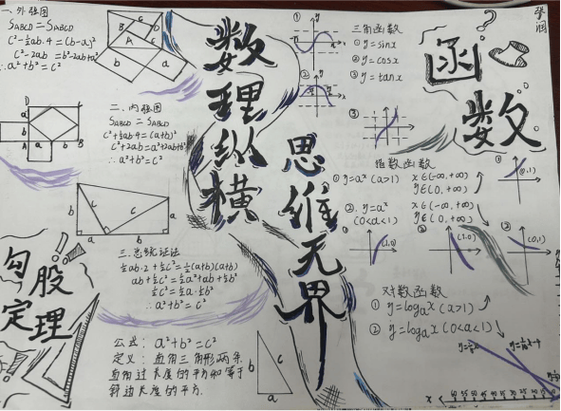 一.外弦图
S ABCD = S ABCD
c²-½ab·4=(b-a)²
c²-2ab=b²-2ab+a²
∴a²+b²=c²
二.内弦图
S ABCD = S ABCD
c²+½ab·4=(a+b)²
c²+2ab=a²+2ab+b²
∴a²+b²=c²
三.总统证法
½ab·2+½c²=½(a+b)(a+b)
ab+½c²=½a²+ab+½b²
½c²=½a²+½b²
∴a²+b²=c²
勾股
定理
公式: a²+b²=c²
定义: 直角三角形两条
直角边长度的平方和等于
斜边长度的平方.
数理纵横
思维无界
函数
三角函数
①y=sinx
②y=cosx
③y=tanx
指数函数
①y=aˣ(a>1) x∈(-∞,+∞)
y∈(0,+∞)
②y=aˣ x∈(-∞,+∞)
(0<a<1) y∈(0,+∞)
(0,1)
(1,0)
(1,0)
(0,1)
对数函数
①y=logₐx(a>1)
②y=logₐx(0<a<1)